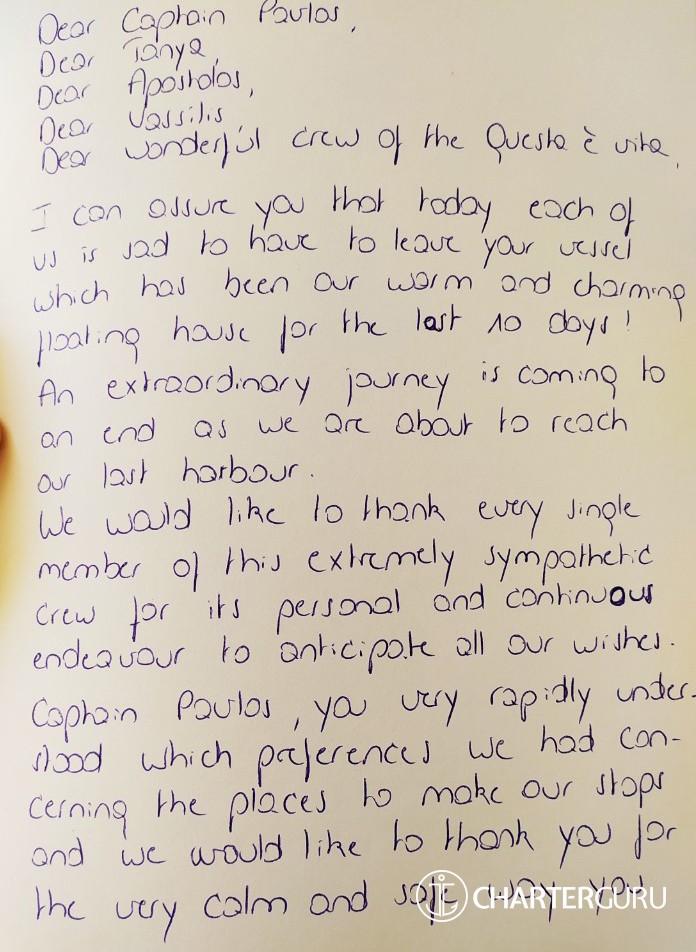 Dear Captain Pavlos,
Dear Tanya,
Dear Apostolos,
Dear Vassilis,
Dear wonderful crew of the Questa è vita,
I can assure you that today each of
us is sad to have to leave your vessel
which has been our warm and charming
floating house for the last 10 days!
An extraordinary journey is coming to
an end as we are about to reach
our last harbour.
We would like to thank every single
member of this extremely sympathetic
crew for its personal and continuous
endeavour to anticipate all our wishes.
Captain Pavlos, you very rapidly under-
stood which preferences we had con-
cerning the places to make our stops
and we would like to thank you for
the very calm and safe way you
CHARTERGURU